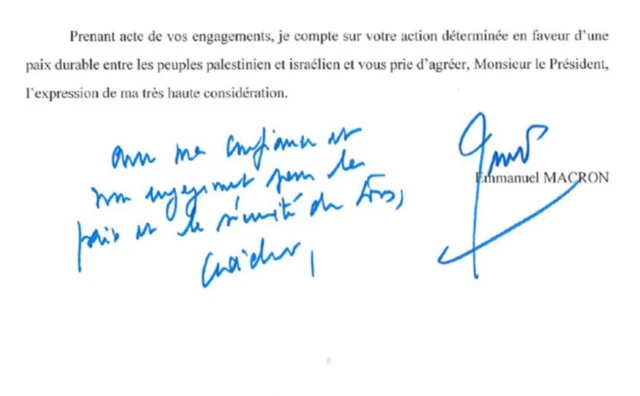 Prenant acte de vos engagements, je compte sur votre action déterminée en faveur d’une
paix durable entre les peuples palestinien et israélien et vous prie d’agréer, Monsieur le Président,
l’expression de ma très haute considération.
Avec ma confiance et
mon engagement pour la
paix et la sécurité de tous,
Emmanuel MACRON